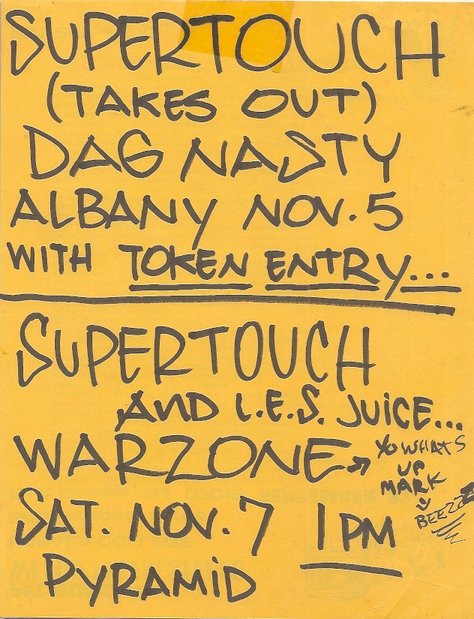 SUPERTOUCH
(TAKES OUT)
DAG NASTY
ALBANY NOV. 5
WITH TOKEN ENTRY...
SUPERTOUCH
AND L.E.S. JUICE...
WARZONE → YO WHATS
UP
MARK
SAT. NOV. 7 1 PM
PYRAMID